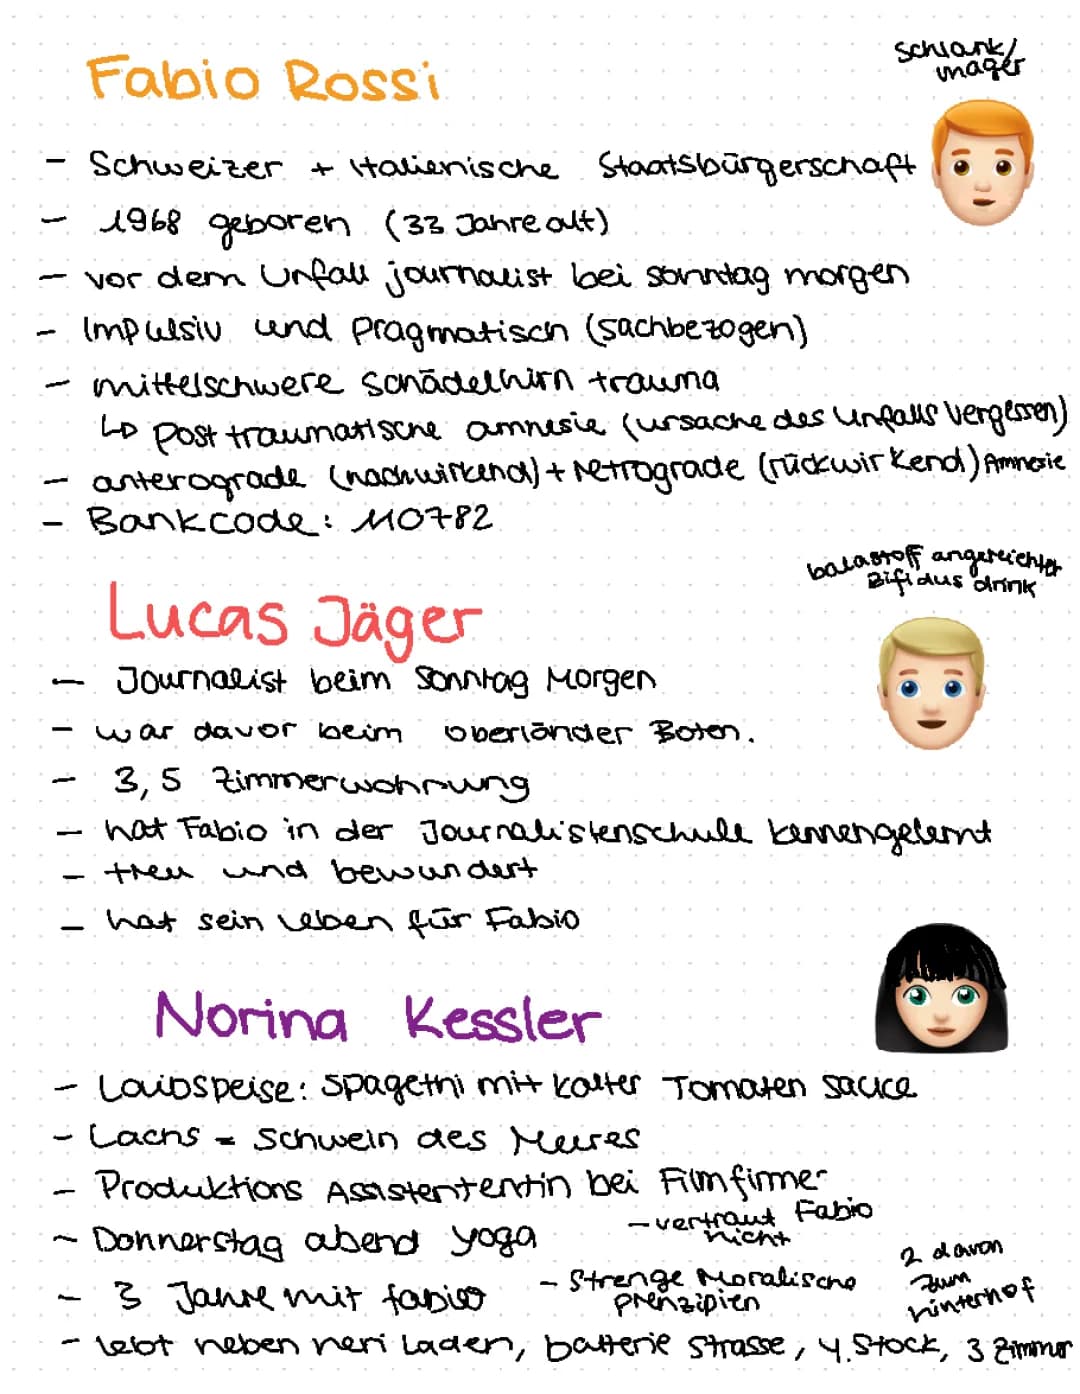 schlank/
mager
Fabio Rossi
- Schweizer + Italienische Staatsbürgerschaft
- 1968 geboren (33 Jahre alt)
- vor dem Unfall journalist bei sonntag morgen
- Impulsiv und Pragmatisch (sachbezogen)
- mittelschwere Schädelhirn trauma
↳ Post traumatische amnesie (ursache des Unfalls vergessen)
- anterograde (nachwirkend) + retrograde (rückwirkend) Amnesie
- Bankcode: 110782
balastoff angereichter
Bifidus drink
Lucas Jäger
- Journalist beim Sonntag Morgen
- war davor beim oberländer Boten.
- 3,5 Zimmerwohnung
- hat Fabio in der Journalistenschule kennengelernt
- treu und bewundert
- hat sein leben für Fabio
Norina Kessler
- Laibspeise: Spagethi mit kalter Tomaten sauce
- Lachs = Schwein des Meeres
- Produktions Assistententin bei Filmfirmer
- Donnerstag abend yoga
- vertraut Fabio
nicht
- 3 Jahre mit fabio
- Strenge Moralische
Prenzipien
2 davon
zum
hinterhof
- lebt neben neri Laden, batterie strasse, 4. Stock, 3 Zimmer